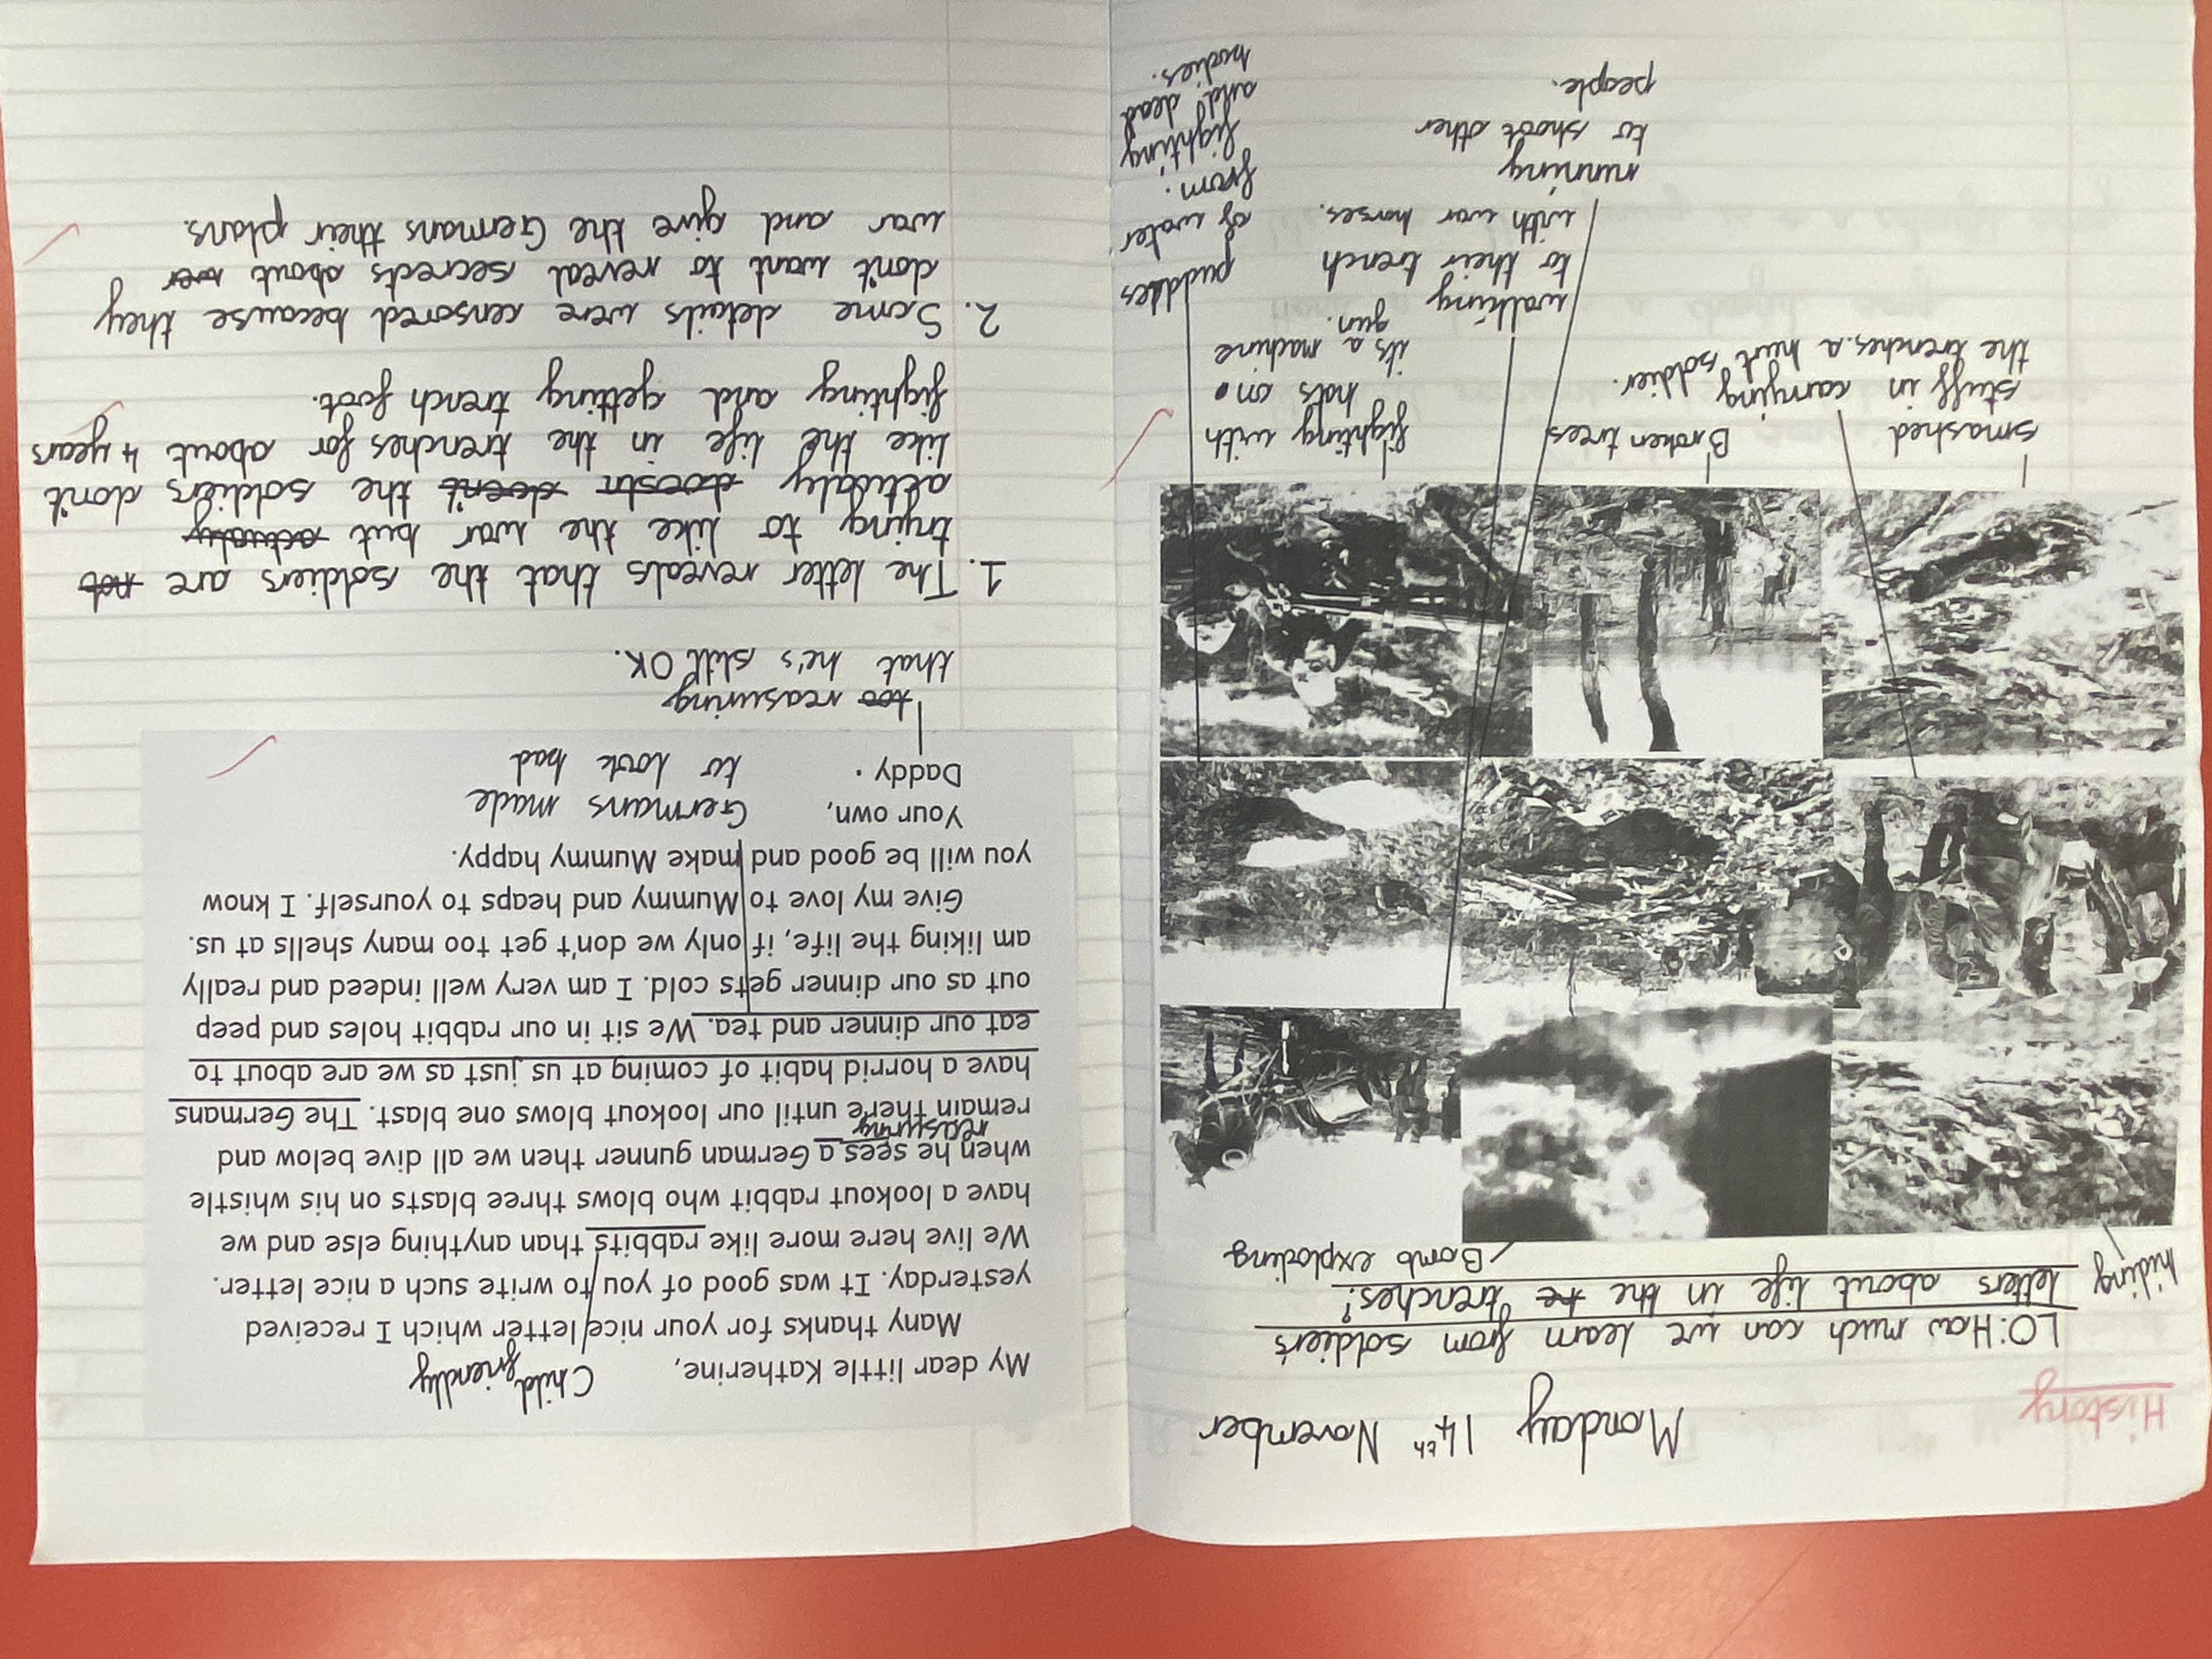 History
Monday 14th November
LO: How much can we learn from soldiers
letters about life in the te trenches?
hiding
Bomb exploding
smashed
stuff in
the trenches.
carrying
a hurt soldier.
Broken trees
fighting with
hats on
it's a machine
gun.
walking
to their trench
with war horses.
running
to shoot other
people.
puddles
of water
from
fighting
and dead
bodies.
My dear little Katherine,
Child
friendly
Many thanks for your nice letter which I received
yesterday. It was good of you to write such a nice letter.
We live here more like rabbits than anything else and we
have a lookout rabbit who blows three blasts on his whistle
when he sees a German gunner then we all dive below and
reasuring
remain there until our lookout blows one blast. The Germans
have a horrid habit of coming at us just as we are about to
eat our dinner and tea. We sit in our rabbit holes and peep
out as our dinner gets cold. I am very well indeed and really
am liking the life, if only we don't get too many shells at us.
Give my love to Mummy and heaps to yourself. I know
you will be good and make Mummy happy.
Your own,
Daddy.
Germans made
to look bad
too reasuring
that he's still OK.
1. The letter reveals that the soldiers are not
trying to like the war but actually
actualy doesn doent the soldiers don't
like the life in the trenches for about 4 years
fighting and getting trench foot.
2. Some details were censored because they
don't want to reveal secreds about over
war and give the Germans their plans.